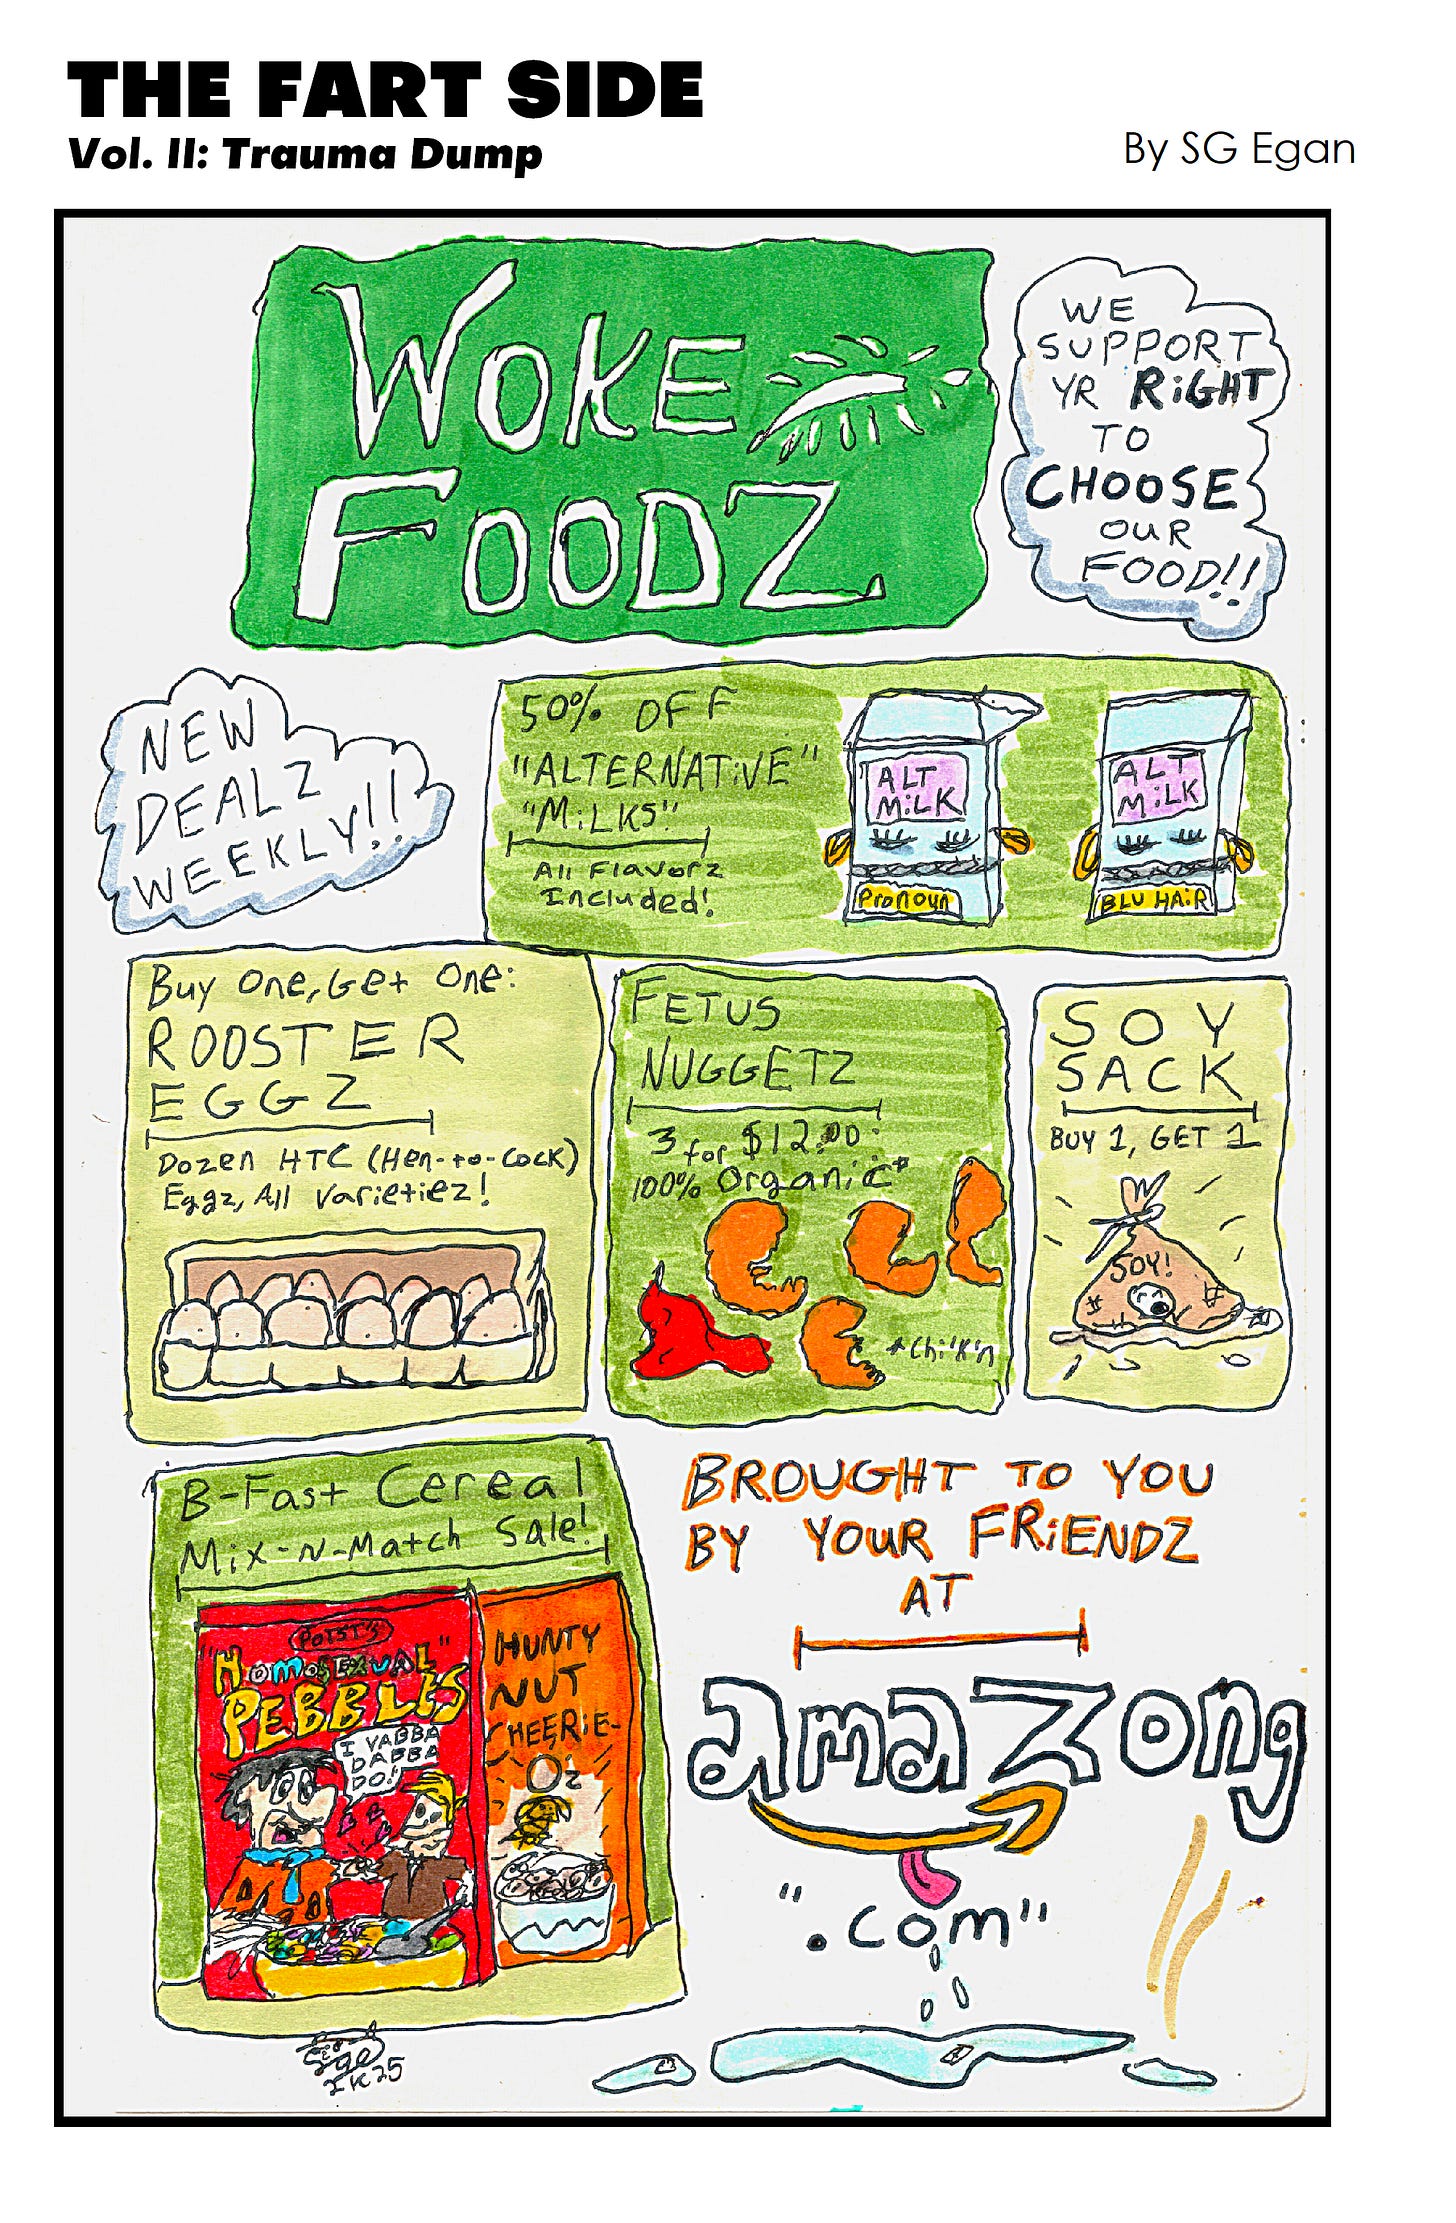 THE FART SIDE
Vol. II: Trauma Dump
By SG Egan
WOKE
FOODZ
WE
SUPPORT
YR RiGHT
TO
CHOOSE
OUR
FOOD!!
NEW
DEALZ
WEEKLY!!
50% OFF
"ALTERNATiVE"
"MiLKS"
All Flavorz
Included!
ALT
MiLK
PRONOUN
ALT
MiLK
BLU HAiR
Buy One, Get One:
ROOSTER
EGGZ
Dozen HTC (Hen-to-Cock)
Eggz, All Varietiez!
FETUS
NUGGETZ
3 for $12.00:
100% Organic*
*Chi'k'n
SOY
SACK
BUY 1, GET 1
SOY!
B-Fast Cereal
Mix-N-Match Sale!
POTST'S
"HOMOSEXUAL"
PEBBLES
I YABBA
DABBA
DO!
HUNTY
NUT
CHEERiE-
Oz
BROUGHT TO YOU
BY YOUR FRiENDZ
AT
amaZong
".com"
25